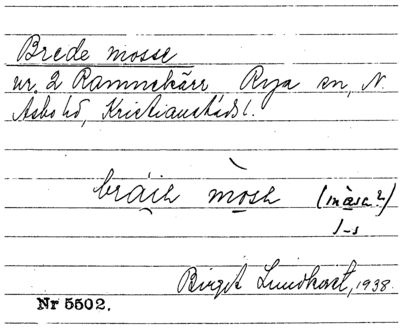 Brede mosse
nr. 2 Ramnekärr Rya sn, N.
Åsbo hd, Kristianstads l.
bräih mòsh (màsa?)
s-s
Birgit Lundkvist, 1938.
Nr 5502.